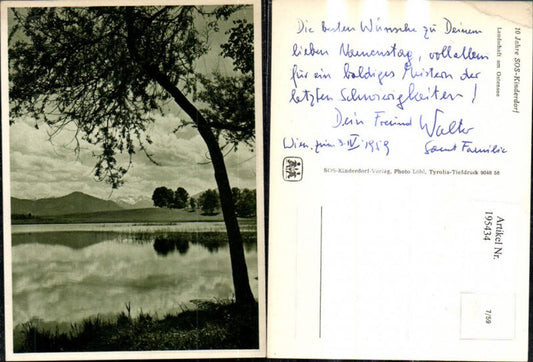 Die besten Wünsche zu Deinem
lieben Namenstag, vor allem
für ein baldiges Meistern der
letzten Schwierigkeiten!
Dein Freund Walter
Wien, am 3. IV 1959
Samt Familie
10 Jahre SOS-Kinderdorf
Landschaft am
SOS-Kinderdorf-Verlag, Photo Löbl, Tyrolia-Tiefdruck 9048 58
Artikel Nr.
195434
7/59